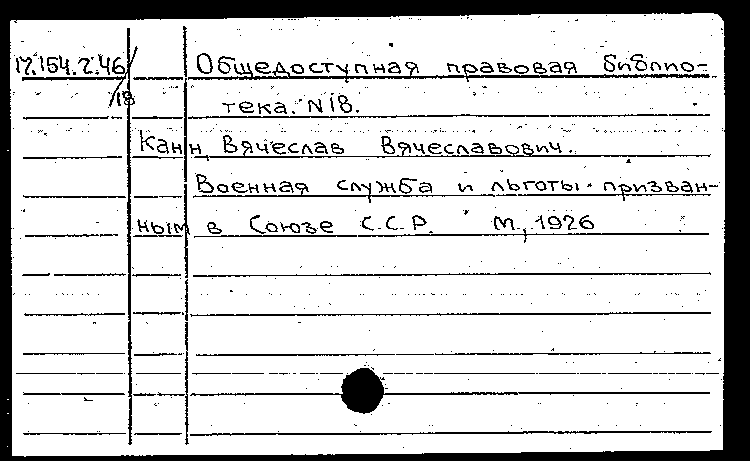 17.154.2.46/18 Общедоступная правовая библио-
тека. N18.
Канн, Вячеслав Вячеславович.
Военная служба и льготы призван-
ным в Союзе С.С.Р. М., 1926